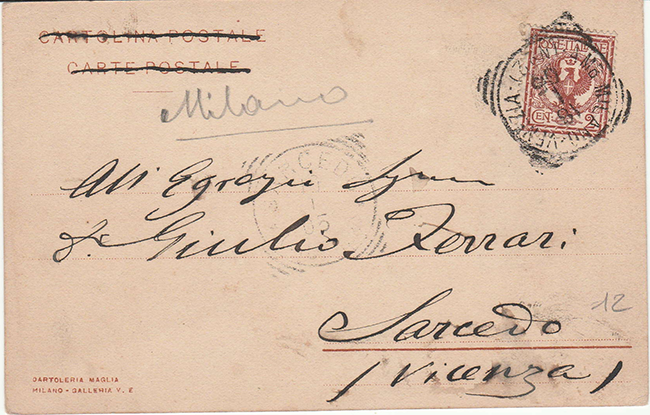 CARTOLINA POSTALE
CARTE POSTALE
POSTE ITALIANE
CENT. 2
MILANO-VENEZIA
Milano
SARCEDO
All' Egregio Signor
Giulio Ferrari
12
Sarcedo
(Vicenza)
CARTOLERIA MAGLIA
MILANO - GALLERIA V. E